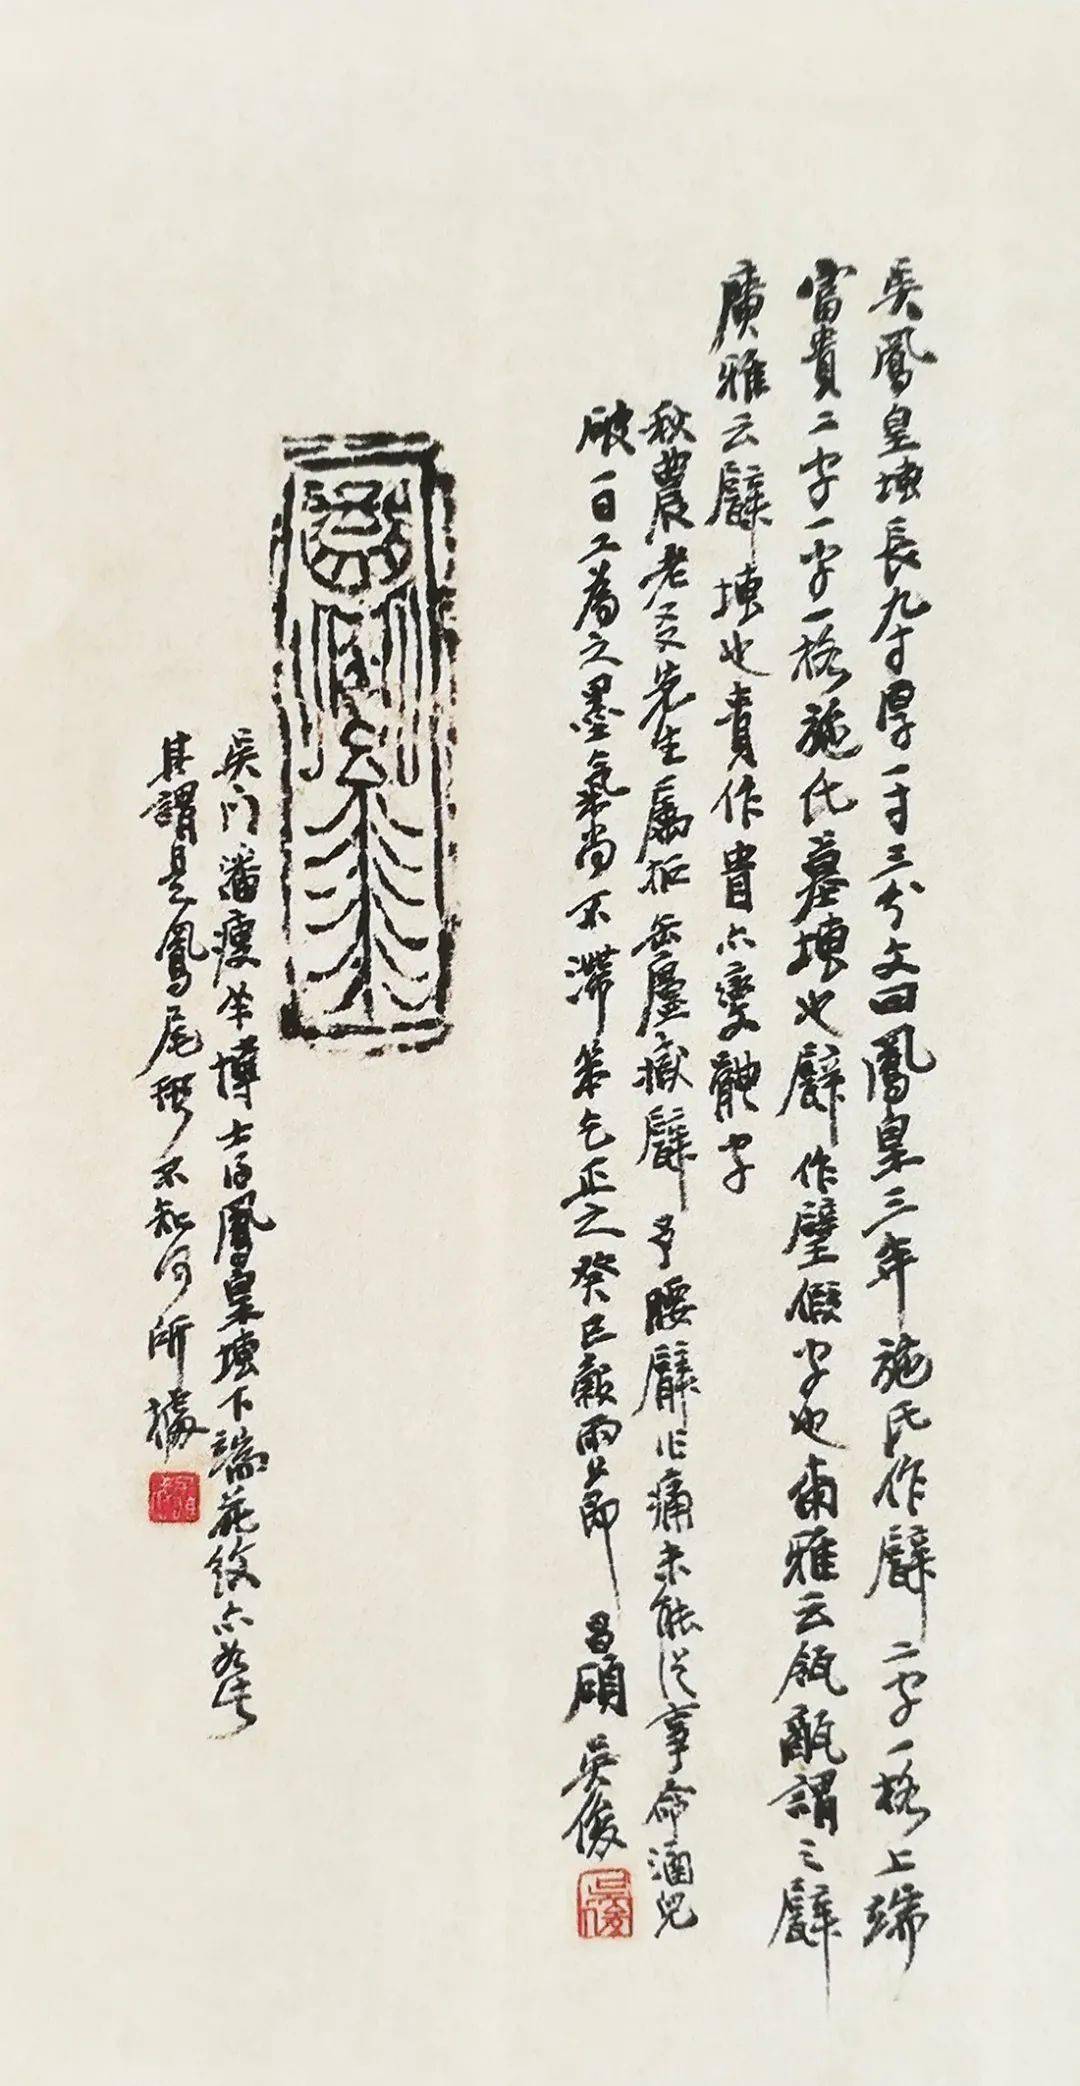 吳鳳皇塼長九寸厚一寸三分文曰鳳皇三年施氏作甓二字一格上端
富貴二字一字一格施氏墓塼也甓作壁假字也爾雅云瓴甋謂之甓
廣雅云甓塼也貴作貴亦變體字
秋農老友先生屬拓缶廬藏甓予腰臂作痛未能從事命涵兒
破一日工為之墨氣尚不滯笨乞正之癸巳穀雨節 昌碩吳俊
吳俊
吳門潘瘦羊博士后鳳皇塼下端花紋亦如此
其謂是鳳尾形不知何所據